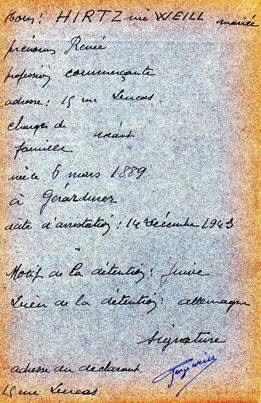 Nom: HIRTZ née WEILL mariée
prénom Renée
profession commerçante
adresse: 15 rue Leucas
charges de néant
famille
née le 6 mars 1889
à Gérardmer
date d'arrestation: 14 décembre 1943
Motif de la détention: juive
Lieu de la détention: allemagne
signature
adresse du déclarant
15 rue Leucas